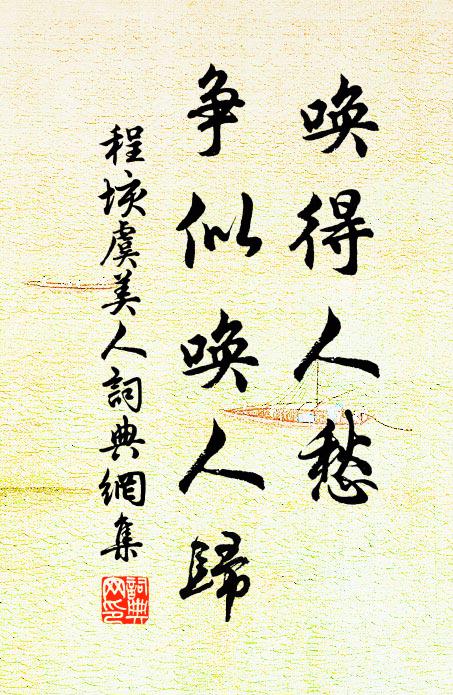 喚得人愁
争似喚人歸
程垓虞美人詞典網集
詞典网印